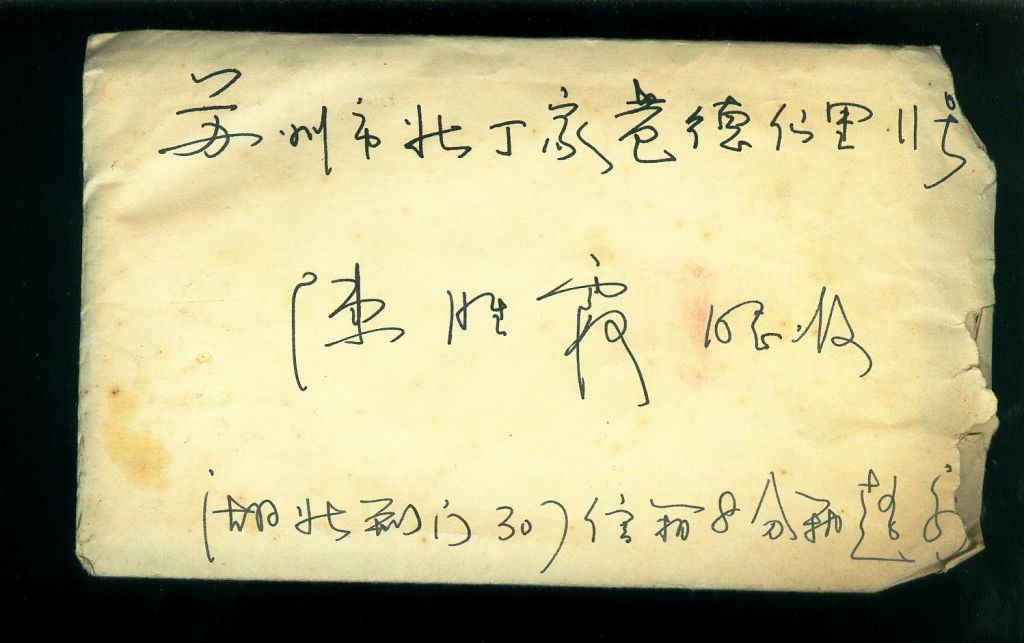 苏州市北丁家巷德仁里11号
陈胜霞 收
(湖北荆门307信箱8分箱